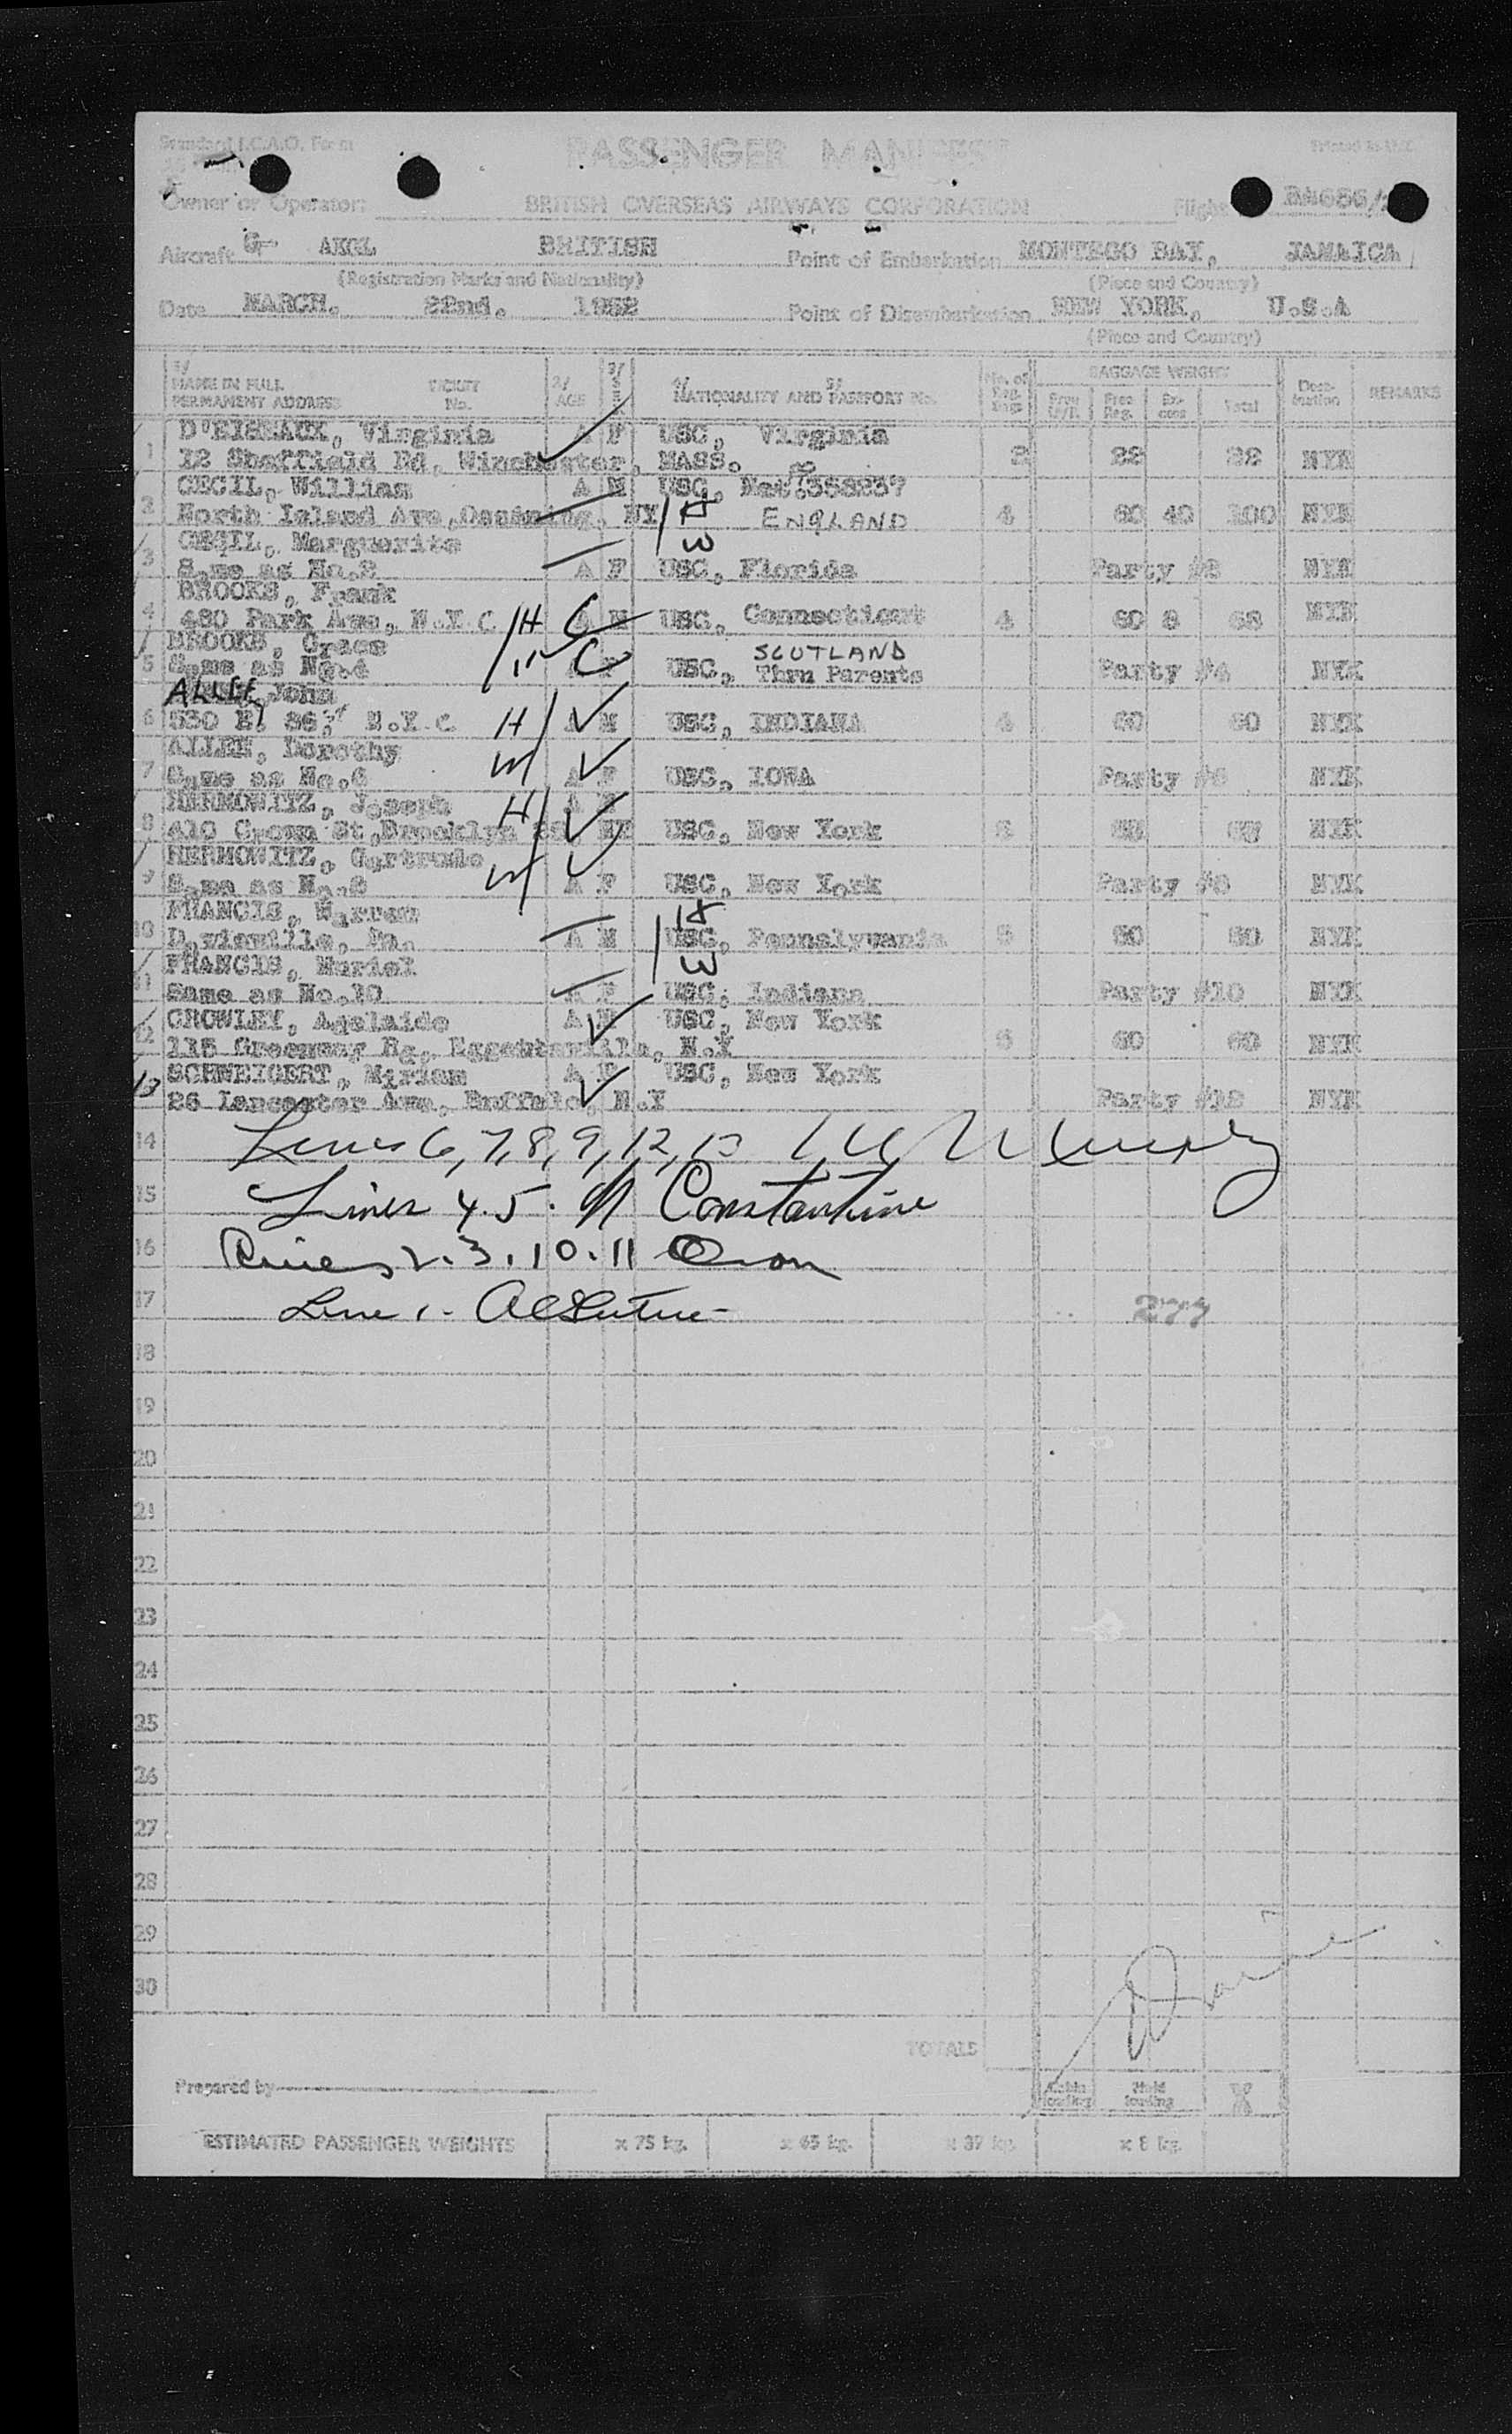 Standard I.C.A.O. Form
PASSENGER MANIFEST
Owner or Operator: BRITISH OVERSEAS AIRWAYS CORPORATION Flight
Aircraft G- BRITISH Point of Embarkation MONTEGO BAY, JAMAICA
(Registration Marks and Nationality) (Place and Country)
Date MARCH. 22nd. 1952 Point of Disembarkation NEW YORK, U.S.A
(Place and Country)
1/ 2/ 3/ 4/ 5/ No. of BAGGAGE WEIGHT
NAME IN FULL TICKET AGE SEX NATIONALITY AND PASSPORT No. Reg. Free Ex- Total Dest- REMARKS
PERMANENT ADDRESS No. Bags Reg. cess ination
1 Virginia A F USC, Virginia
12 Sheffield Rd, Winchester, MASS. 2 22 22 NYK
CECIL, William A M USC, Nat.
2 North Island Ave, Ossining, NY H ENGLAND 4 60 40 100 NYK
CECIL, Marguerite W
3 Same as No.2 A F USC, Florida Party #2 NYK
BROOKS, Frank
4 480 Park Ave, N.Y.C H C A M USC, Connecticut 4 60 8 68 NYK
BROOKS, Grace SCOTLAND
5 Same as No.4 C A F USC, Thru Parents Party #4 NYK
John
6 530 E. 86 N.Y.C H A M USC, INDIANA 4 60 60 NYK
ALLEN, Dorothy
7 Same as No.6 W A F USC, IOWA Party #6 NYK
HERMOWITZ, Joseph H A M
8 410 Crown St, Brooklyn NY USC, New York NYK
HERMOWITZ, Gertrude
9 Same as No.8 W A F USC, New York Party #8 NYK
FRANCIS, Warren H
10 Davisville, Pa. A M USC, Pennslyvania 60 60 NYK
FRANCIS, Muriel W
11 Same as No.10 A F USC, Indiana Party #10 NYK
CROWLEY, Adelaide A USC, New York
12 115 Greenway Rd, N.Y 60 60 NYK
13 SCHWEIGERT, Miriam A F USC, New York
26 Lancaster Ave, Buffalo, N.Y Party #12 NYK
14 Lines 6, 7, 8, 9, 12, 13
15 Lines 4.5. Constantine
16 Lines 2.3.10.11
17 Line 1 - 277
18
19
20
21
22
23
24
25
26
27
28
29
30
TOTALS
Prepared by Cabin Hold X
loading loading
ESTIMATED PASSENGER WEIGHTS x 75 kg. x 65 kg. x 39 kg. x 8 kg.